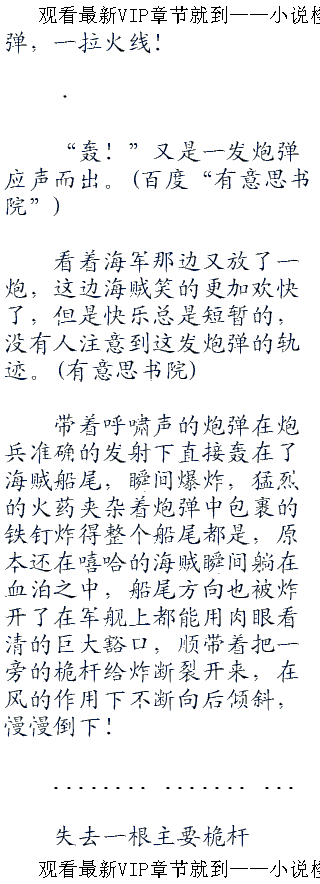 观看最新VIP章节就到——小说楼
弹，一拉火线！
.
“轰！”又是一发炮弹
应声而出。(百度“有意思书
院”)
看着海军那边又放了一
炮，这边海贼笑的更加欢快
了，但是快乐总是短暂的，
没有人注意到这发炮弹的轨
迹。(有意思书院)
带着呼啸声的炮弹在炮
兵准确的发射下直接轰在了
海贼船尾，瞬间爆炸，猛烈
的火药夹杂着炮弹中包裹的
铁钉炸得整个船尾都是，原
本还在嘻哈的海贼瞬间躺在
血泊之中，船尾方向也被炸
开了在军舰上都能用肉眼看
清的巨大豁口，顺带着把一
旁的桅杆给炸断裂开来，在
风的作用下不断向后倾斜，
慢慢倒下！
........ ....... ...
失去一根主要桅杆
观看最新VIP章节就到——小说楼